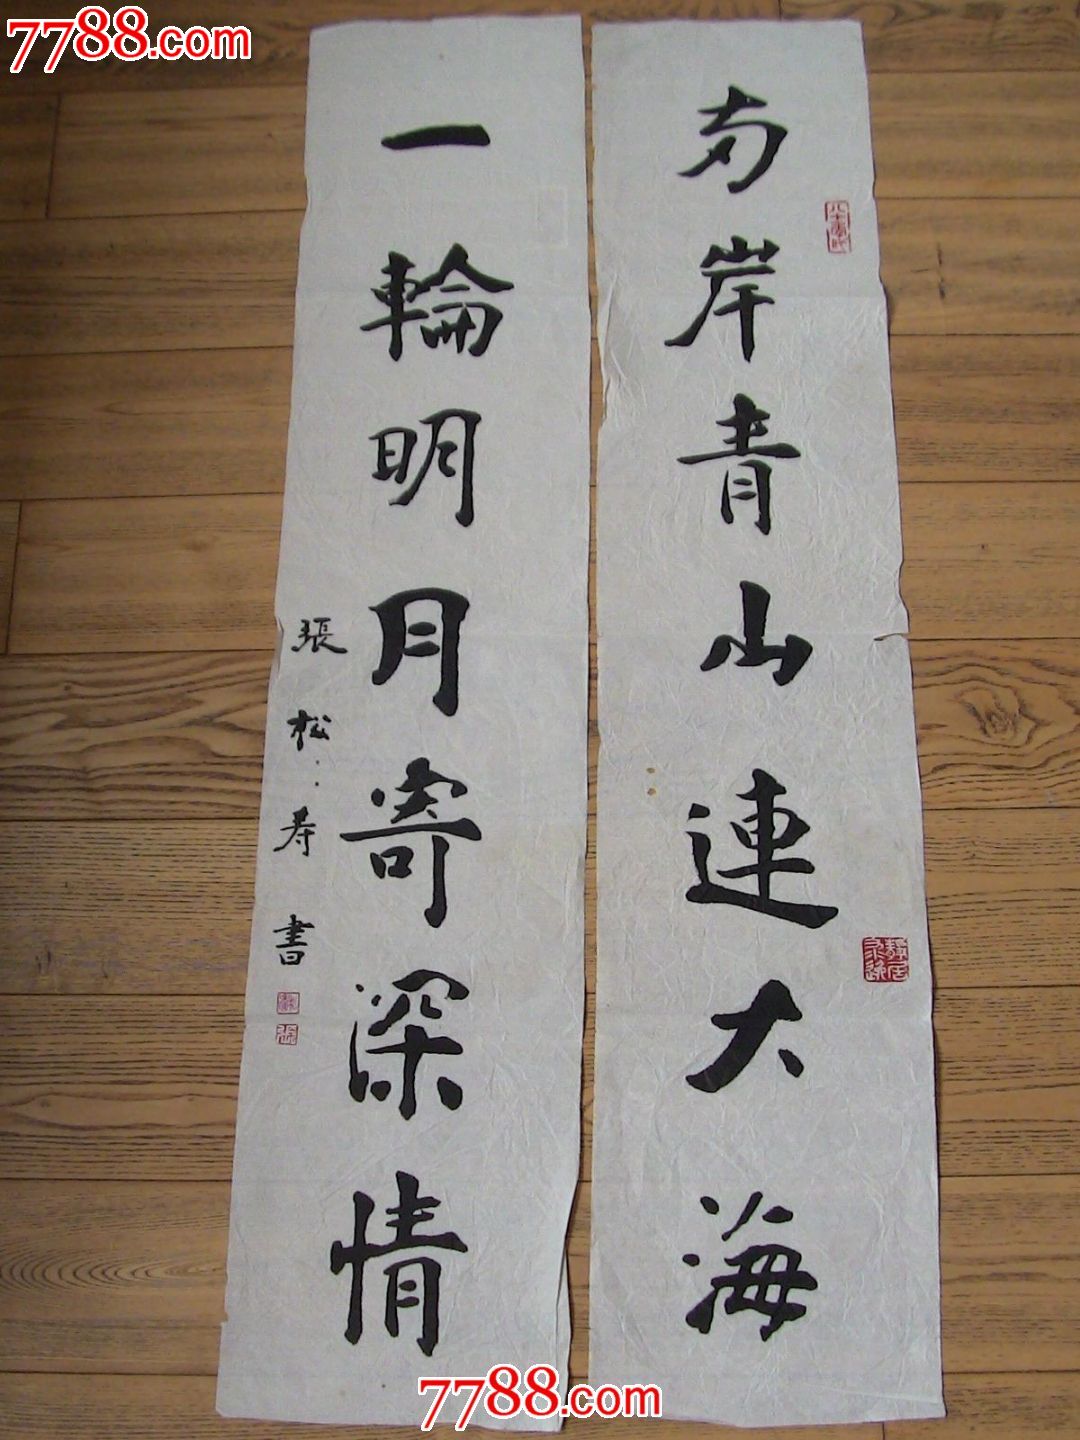 7788.com
两岸青山連大海
一輪明月寄深情
張松寿書
7788.com